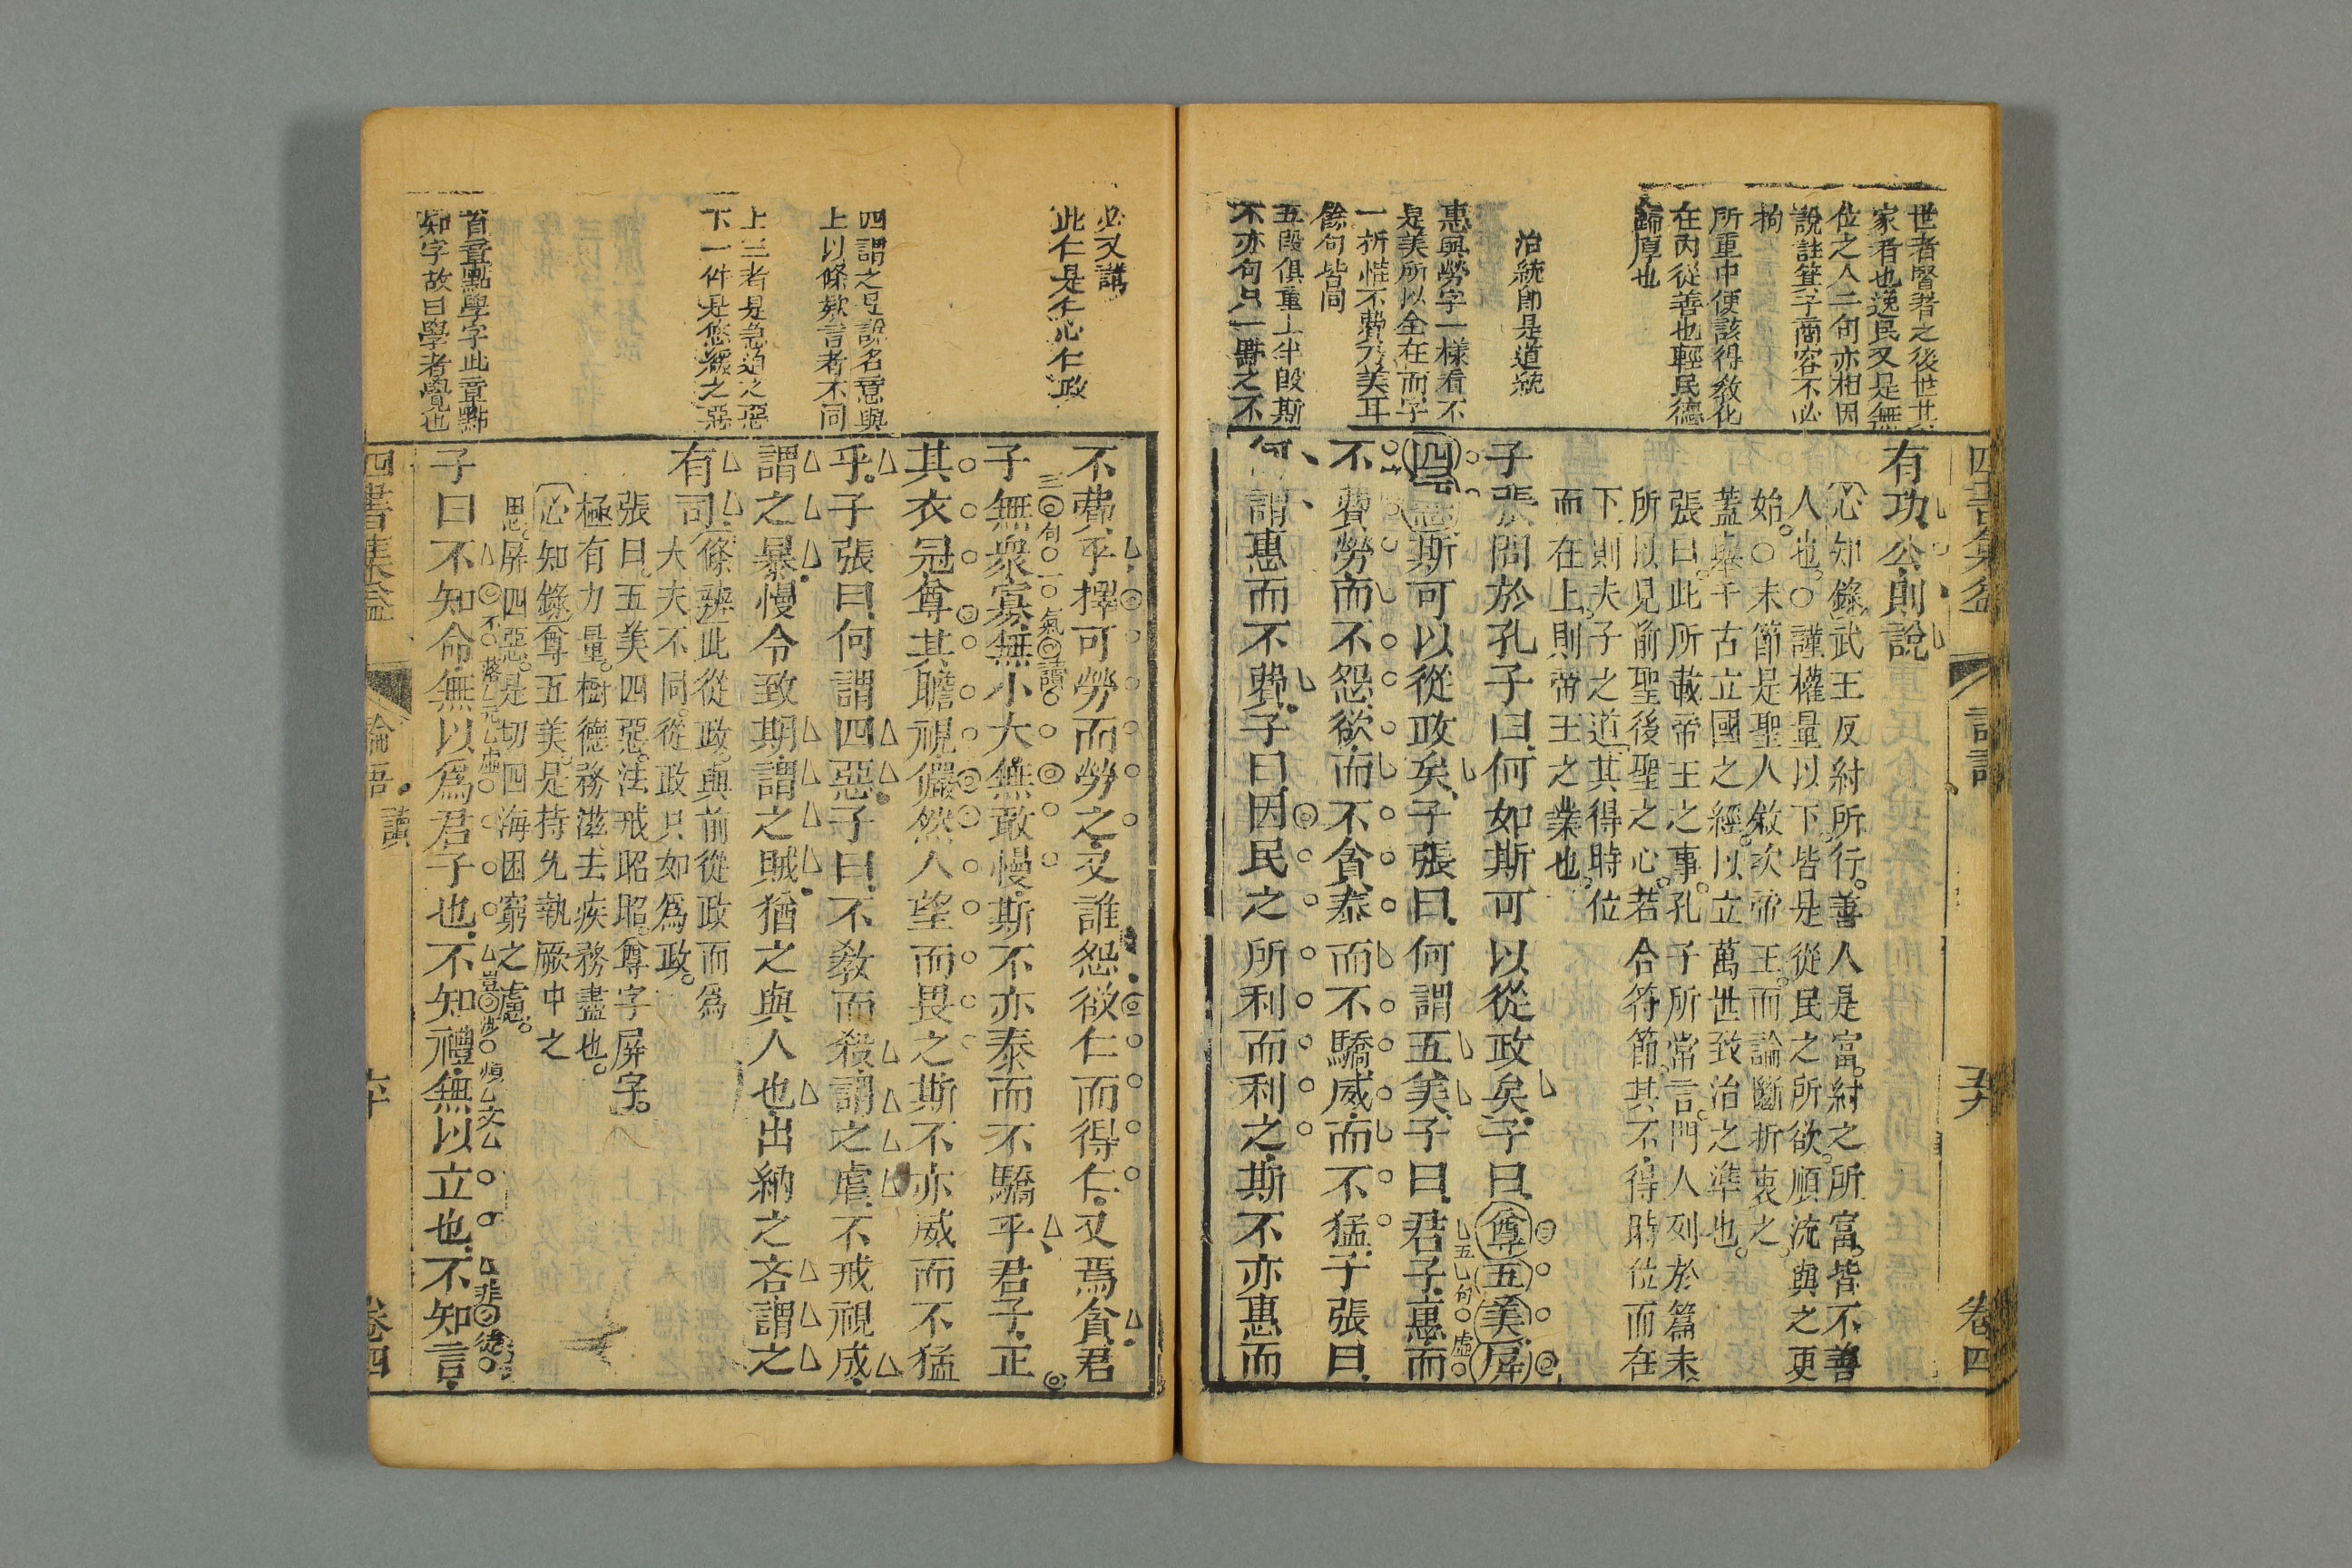 世者賢者之後世其
家者也逸民又是無
位之人二句亦相因
說註箕子商容不必
拘
所重中便該得教化
在內從善也輕民德
歸厚也
治統即是道統
惠與勞字一樣看不
是美所以全在而字
一折惟不費乃美耳
餘句皆同
五段俱重上半段斯
不亦句只一點之不
四書集益
論語
卷四
有功公則說
心知錄武王反紂所行善人是富紂之所富皆不善
人也○謹權量以下皆是從民之所欲順流與之更
始○末節是聖人敘次帝王而論斷折衷之
蓋舉千古立國之經以立萬世致治之準也
張曰此所載帝王之事孔子所常言門人列於篇末
所以見前聖後聖之心若合符節其不得時位而在
下則夫子之道其得時位
而在上則帝王之業也
子張問於孔子曰何如斯可以從政矣子曰尊五美屏
四惡斯可以從政矣子張曰何謂五美子曰君子惠而
五句虛
不費勞而不怨欲而不貪泰而不驕威而不猛子張曰
何謂惠而不費子曰因民之所利而利之斯不亦惠而
必又講
此仁是仁心仁政
四謂之是說名意與
上以條款言者不同
上三者是急迫之惡
下一件是悠緩之惡
首章點學字此章點
知字故曰學者覺也
不費乎擇可勞而勞之又誰怨欲仁而得仁又焉貪君
三句一氣讀
子無衆寡無小大無敢慢斯不亦泰而不驕乎君子正
其衣冠尊其瞻視儼然人望而畏之斯不亦威而不猛
乎子張曰何謂四惡子曰不教而殺謂之虐不戒視成
謂之暴慢令致期謂之賊猶之與人也出納之吝謂之
有司
條辨此從政與前從政而爲
大夫不同從政只如爲政
張曰五美四惡法戒昭昭尊字屏字
極有力量樹德務滋去疾務盡也
心知錄尊五美是持允執厥中之
思屏四惡是切四海困窮之慮
子曰不知命無以爲君子也不知禮無以立也不知言
四書集益
論語
讀
卷四